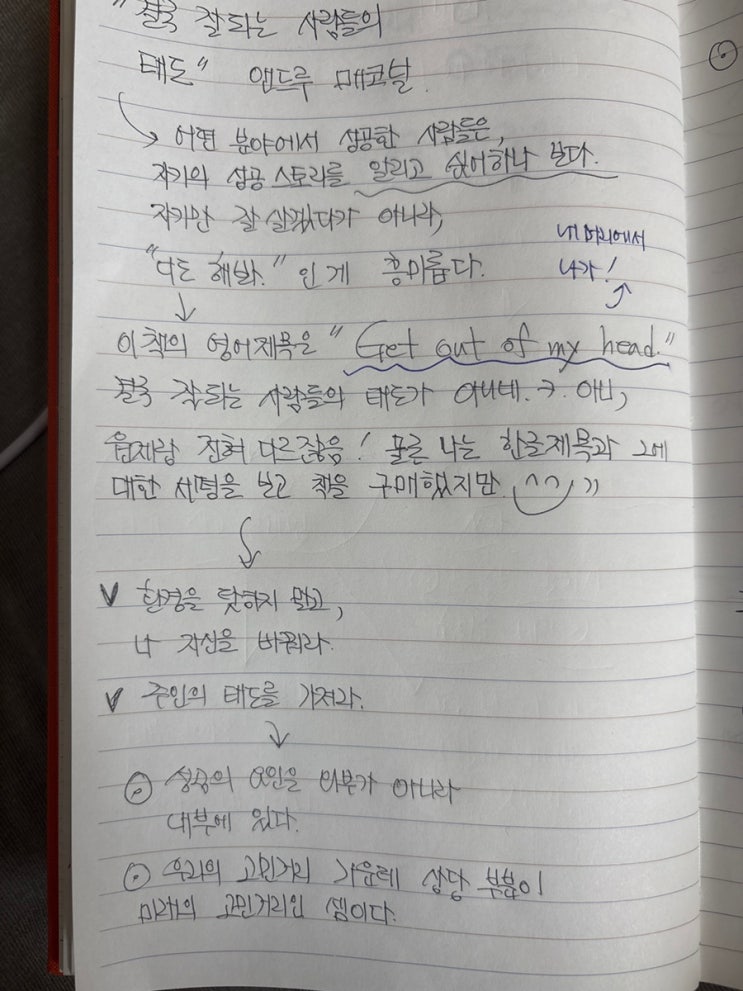 "결국 잘되는 사람들의
태도" 앤드루 매코널.
어떤 분야에서 성공한 사람들은,
자기의 성공 스토리를 알리고 싶어하나 보다.
자기만 잘 살겠다가 아니라,
"너도 해봐." 인 게 흥미롭다.
내 머리에서
나가!
이 책의 영어제목은 "Get out of my head."
결국 잘되는 사람들의 태도가 아니네.ㅋ. 아니,
원제랑 전혀 다르잖음! 물론 나는 한글제목과 그에
대한 설명을 보고 책을 구매했지만 ^^))
V 환경을 탓하지 말고,
나 자신을 바꿔라.
V 주인의 태도를 가져라.
성공의 요인을 외부가 아니라
내부에 있다.
우리의 고민거리 가운데 상당 부분이
미래의 고민거리인 셈이다.